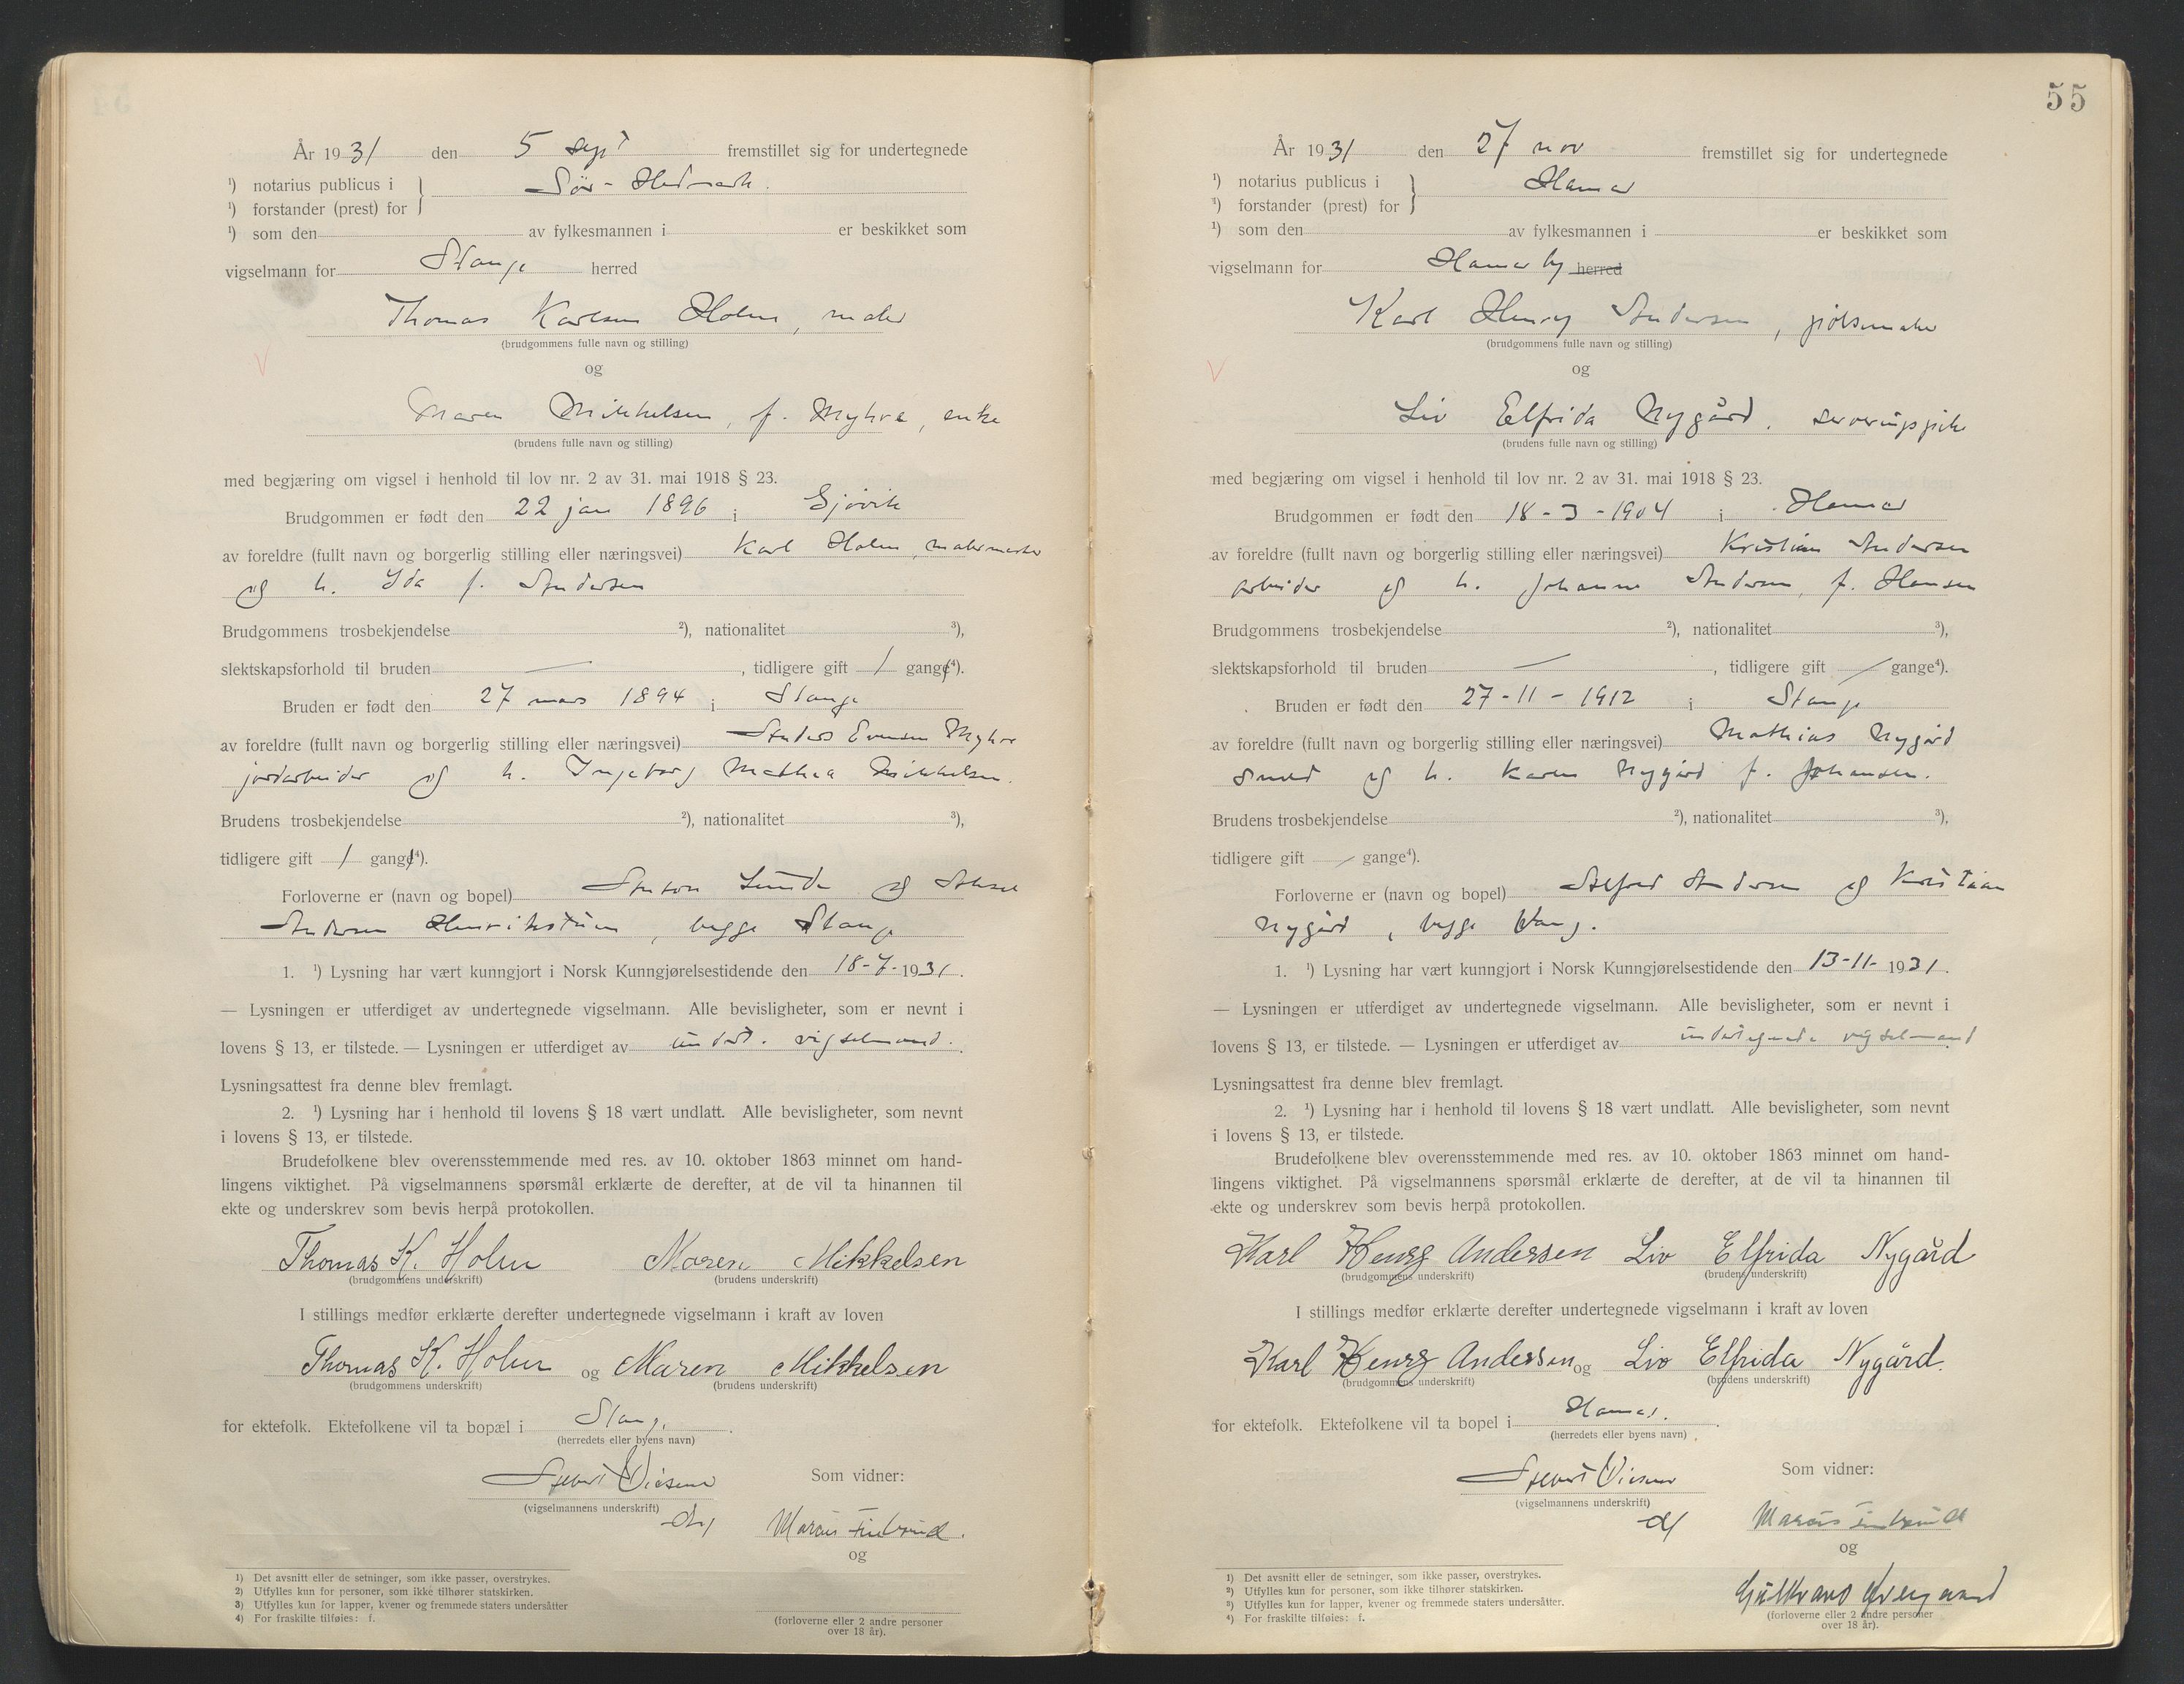 År 1931 den 5 sept fremstillet sig for undertegnede
¹) notarius publicus i
Sør-Hedmark.
¹) forstander (prest) for
¹) som den av fylkesmannen i er beskikket som
vigselmann for Stange herred
Thomas Karlsen Holm, maler
(brudgommens fulle navn og stilling)
og
Maren Mikkelsen, f. Myhre, enke
(brudens fulle navn og stilling)
med begjæring om vigsel i henhold til lov nr. 2 av 31. mai 1918 § 23.
Brudgommen er født den 22 jan 1896 i Gjøvik
av foreldre (fullt navn og borgerlig stilling eller næringsvei) Karl Holm, malermester
og h. Ida f. Andersen
Brudgommens trosbekjendelse ²), nationalitet ³),
slektskapsforhold til bruden — , tidligere gift 1 gang⁴).
Bruden er født den 27 mars 1894 i Stange
av foreldre (fullt navn og borgerlig stilling eller næringsvei) Anders Evensen Myhre
jordarbeider og h. Ingeborg Mathea Mikkelsen.
Brudens trosbekjendelse ²), nationalitet ³),
tidligere gift 1 gang⁴).
Forloverne er (navn og bopel) Anton Lunde og Aksel
Andersen Henrikstuen, begge Stange
1. ¹) Lysning har vært kunngjort i Norsk Kunngjørelsestidende den 18-7-1931.
— Lysningen er utferdiget av undertegnede vigselmann. Alle bevisligheter, som er nevnt i
lovens § 13, er tilstede. — Lysningen er utferdiget av undert. vigselmand.
Lysningsattest fra denne blev fremlagt.
2. ¹) Lysning har i henhold til lovens § 18 vært undlatt. Alle bevisligheter, som nevnt
i lovens § 13, er tilstede.
Brudefolkene blev overensstemmende med res. av 10. oktober 1863 minnet om hand-
lingens viktighet. På vigselmannens spørsmål erklærte de derefter, at de vil ta hinannen til
ekte og underskrev som bevis herpå protokollen.
Thomas K. Holm Maren Mikkelsen
(brudgommens underskrift) (brudens underskrift)
I stillings medfør erklærte derefter undertegnede vigselmann i kraft av loven
Thomas K. Holm og Maren Mikkelsen
(brudgommens underskrift) (brudens underskrift)
for ektefolk. Ektefolkene vil ta bopæl i Stange.
(herredets eller byens navn)
Som vidner:
(vigselmannens underskrift)
Marius
og
¹) Det avsnitt eller de setninger, som ikke passer, overstrykes.
²) Utfylles kun for personer, som ikke tilhører statskirken.
³) Utfylles kun for lapper, kvener og fremmede staters undersåtter
⁴) For fraskilte tilføies: f.
(forloverne eller 2 andre personer
over 18 år).
55
År 1931 den 27 nov fremstillet sig for undertegnede
¹) notarius publicus i
Hamar
¹) forstander (prest) for
¹) som den av fylkesmannen i er beskikket som
vigselmann for Hamar by herred
Karl Henry Andersen, pølsemaker
(brudgommens fulle navn og stilling)
og
Liv Elfrida Nygård, serveringspike
(brudens fulle navn og stilling)
med begjæring om vigsel i henhold til lov nr. 2 av 31. mai 1918 § 23.
Brudgommen er født den 18-3-1904 i Hamar
av foreldre (fullt navn og borgerlig stilling eller næringsvei) Kristian Andersen
arbeider og h. Johanne Andersen, f. Hansen
Brudgommens trosbekjendelse ²), nationalitet ³),
slektskapsforhold til bruden — , tidligere gift — gange⁴).
Bruden er født den 27-11-1912 i Stange
av foreldre (fullt navn og borgerlig stilling eller næringsvei) Mathias Nygård
smed og h. Karen Nygård f. Johansen.
Brudens trosbekjendelse ²), nationalitet ³),
tidligere gift — gange⁴).
Forloverne er (navn og bopel) Alfred Andersen og Kristian
Nygård, begge Vang.
1. ¹) Lysning har vært kunngjort i Norsk Kunngjørelsestidende den 13-11-1931.
— Lysningen er utferdiget av undertegnede vigselmann. Alle bevisligheter, som er nevnt i
lovens § 13, er tilstede. — Lysningen er utferdiget av undertegnede vigselmand
Lysningsattest fra denne blev fremlagt.
2. ¹) Lysning har i henhold til lovens § 18 vært undlatt. Alle bevisligheter, som nevnt
i lovens § 13, er tilstede.
Brudefolkene blev overensstemmende med res. av 10. oktober 1863 minnet om hand-
lingens viktighet. På vigselmannens spørsmål erklærte de derefter, at de vil ta hinannen til
ekte og underskrev som bevis herpå protokollen.
Karl Henry Andersen Liv Elfrida Nygård
(brudgommens underskrift) (brudens underskrift)
I stillings medfør erklærte derefter undertegnede vigselmann i kraft av loven
Karl Henry Andersen og Liv Elfrida Nygård.
(brudgommens underskrift) (brudens underskrift)
for ektefolk. Ektefolkene vil ta bopel i Hamar.
(herredets eller byens navn)
Som vidner:
(vigselmannens underskrift)
Marius
og
¹) Det avsnitt eller de setninger, som ikke passer, overstrykes.
²) Utfylles kun for personer, som ikke tilhører statskirken.
³) Utfylles kun for lapper, kvener og fremmede staters undersåtter.
⁴) For fraskilte tilføies: f.
(forloverne eller 2 andre personer
over 18 år).